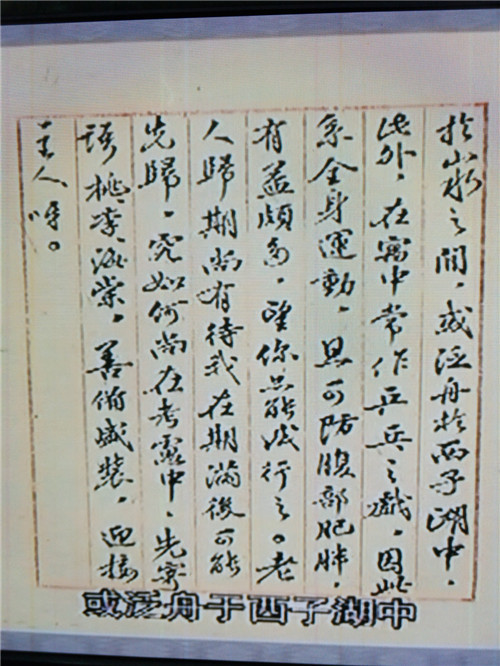 於山水之間，或泛舟於西子湖中。
此外，在寓中常作乒乓之戲，因此
系全身運動，且可防腹部肥胖，
有益頗多，望你也能試行之。老
人歸期尚有待我在期滿後可能
先歸，究如何尚在考慮中，先寄
語桃李海棠，善備盛裝，迎接
主人呀。
或泛舟于西子湖中